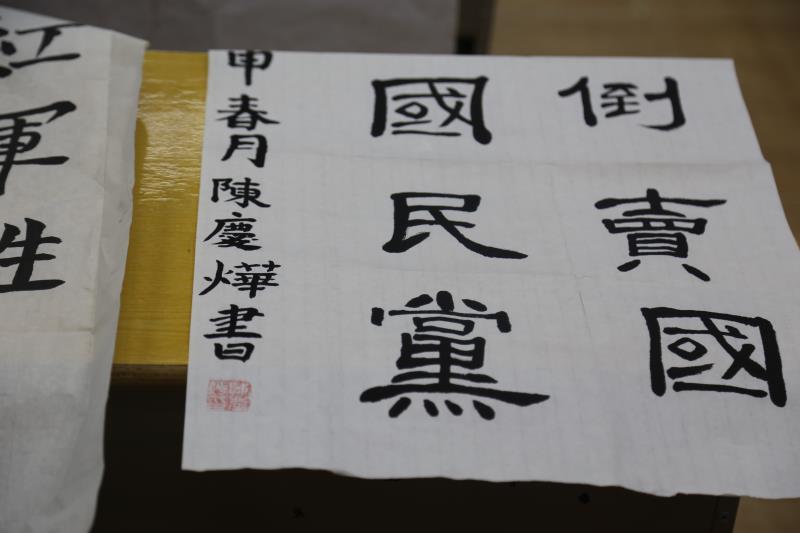 倒賣國
國民黨
甲春月陳慶燁書
紅軍牲